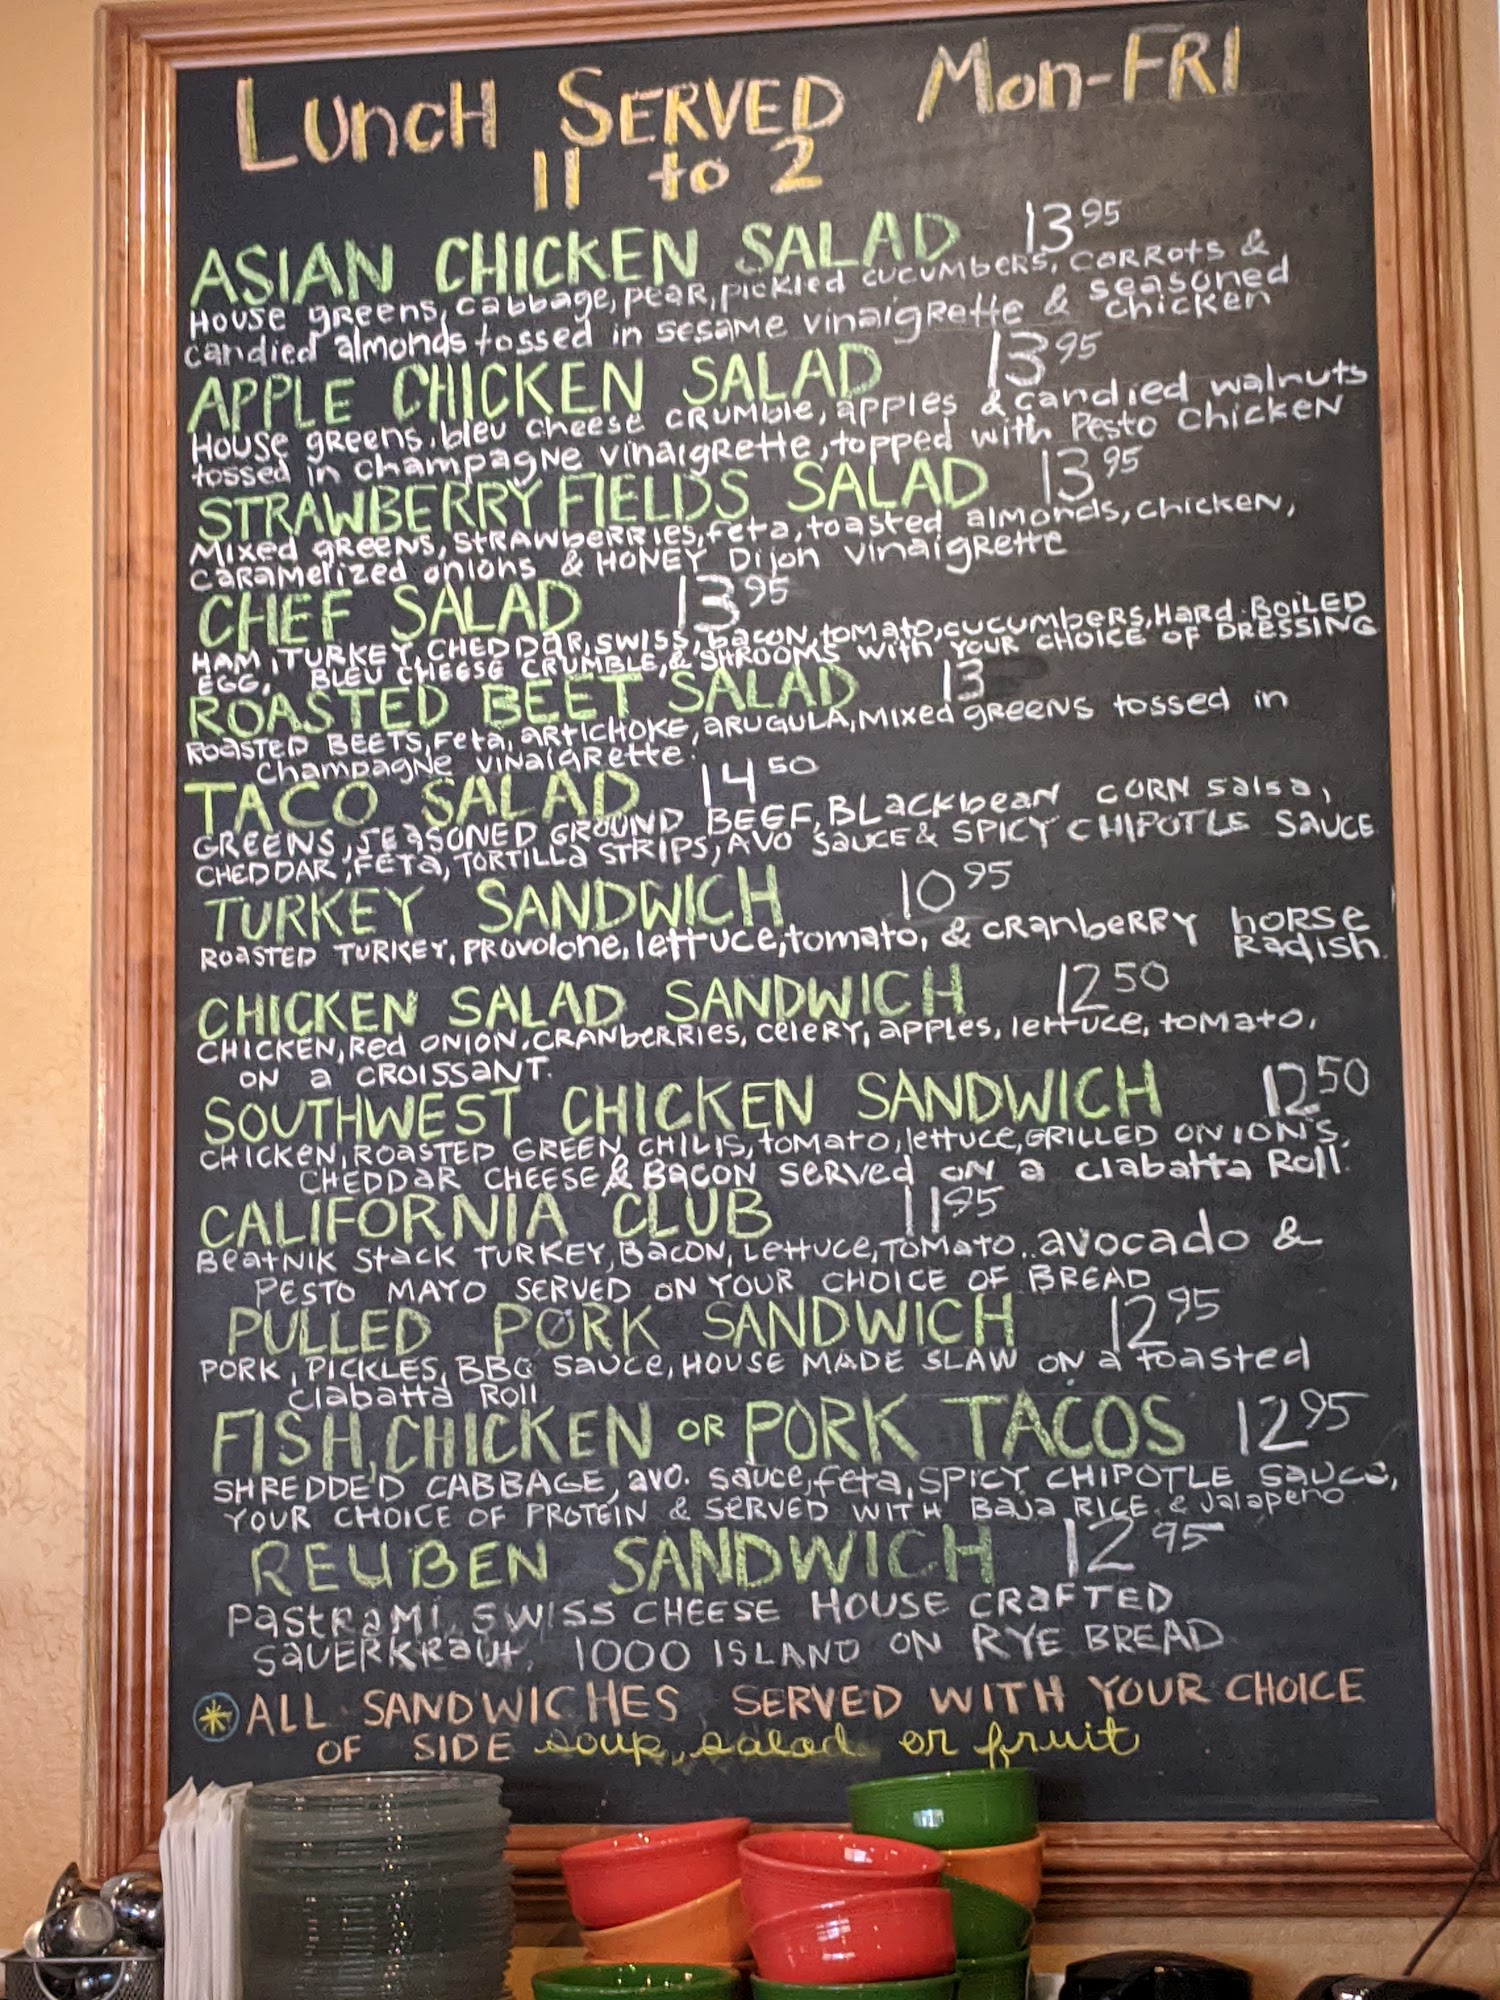 LUncH SERVED Mon-FRI
11 to 2
ASIAN CHICKEN SALAD 13 95
House greens, cabbage, pear, pickled cucumbers, corrots &
candied almonds tossed in sesame vinaigrette & seasoned chicken
APPLE CHICKEN SALAD 13 95
House greens, bleu cheese crumble, apples & candied walnuts
tossed in champagne vinaigrette, topped with Pesto chicken
STRAWBERRY FIELDS SALAD 13 95
Mixed greens, strawberries, feta, toasted almonds, chicken,
caramelized onions & HONEY Dijon vinaigrette
CHEF SALAD 13 95
HAM, TURKEY, CHEDDAR, SWISS, bacon, tomato, cucumbers, Hard-BOILED
EGG, BLEU CHEESE CRUMBLE, & SHROOMS with YOUR CHOICE OF DRESSING
ROASTED BEET SALAD 13
ROASTED BEETS, Feta, ARTICHOKE, ARUGULA, Mixed greens tossed in
champagne vinaigrette.
TACO SALAD 14 50
GREENS, SEASONED GROUND BEEF, BLackbean CORN salsa,
CHEDDAR, FETA, TORTILLA STRIPS, AVO SAUCE & SPICY CHIPOTLE SAUCE
TURKEY SANDWICH 10 95
ROASTED TURKEY, Provolone, lettuce, tomato, & cranberry horse
Radish.
CHICKEN SALAD SANDWICH 12 50
CHICKEN, Red ONION, CRANberries, celery, apples, lettuce, tomato,
ON a CROISSANT.
SOUTHWEST CHICKEN SANDWICH 12 50
CHICKEN, ROASTED GREEN CHILIS, tomato, lettuce, GRILLED ONIONS,
CHEDDAR CHEESE & BACON SERVED ON a ciabatta Roll.
CALIFORNIA CLUB 11 95
Beatnik Stack TURKEY, BACON, Lettuce, TOMATO, avocado &
PESTO MAYO SERVED ON YOUR CHOICE OF BREAD
PULLED PORK SANDWICH 12 95
PORK, PICKLES, BBQ SAUCE, HOUSE MADE SLAW ON a toasted
ciabatta Roll
FISH, CHICKEN OR PORK TACOS 12 95
SHREDDED CABBAGE, avo. sauce, feta, SPICY CHIPOTLE SAUCE,
YOUR CHOICE OF PROTEIN & SERVED WITH BAJA RICE & jalapeno
REUBEN SANDWICH 12 95
Pastrami, SWISS CHEESE HOUSE CRAFTED
SAUERKRAUT, 1000 ISLAND ON RYE BREAD
ALL SANDWICHES SERVED WITH YOUR CHOICE
OF SIDE soup, salad or fruit